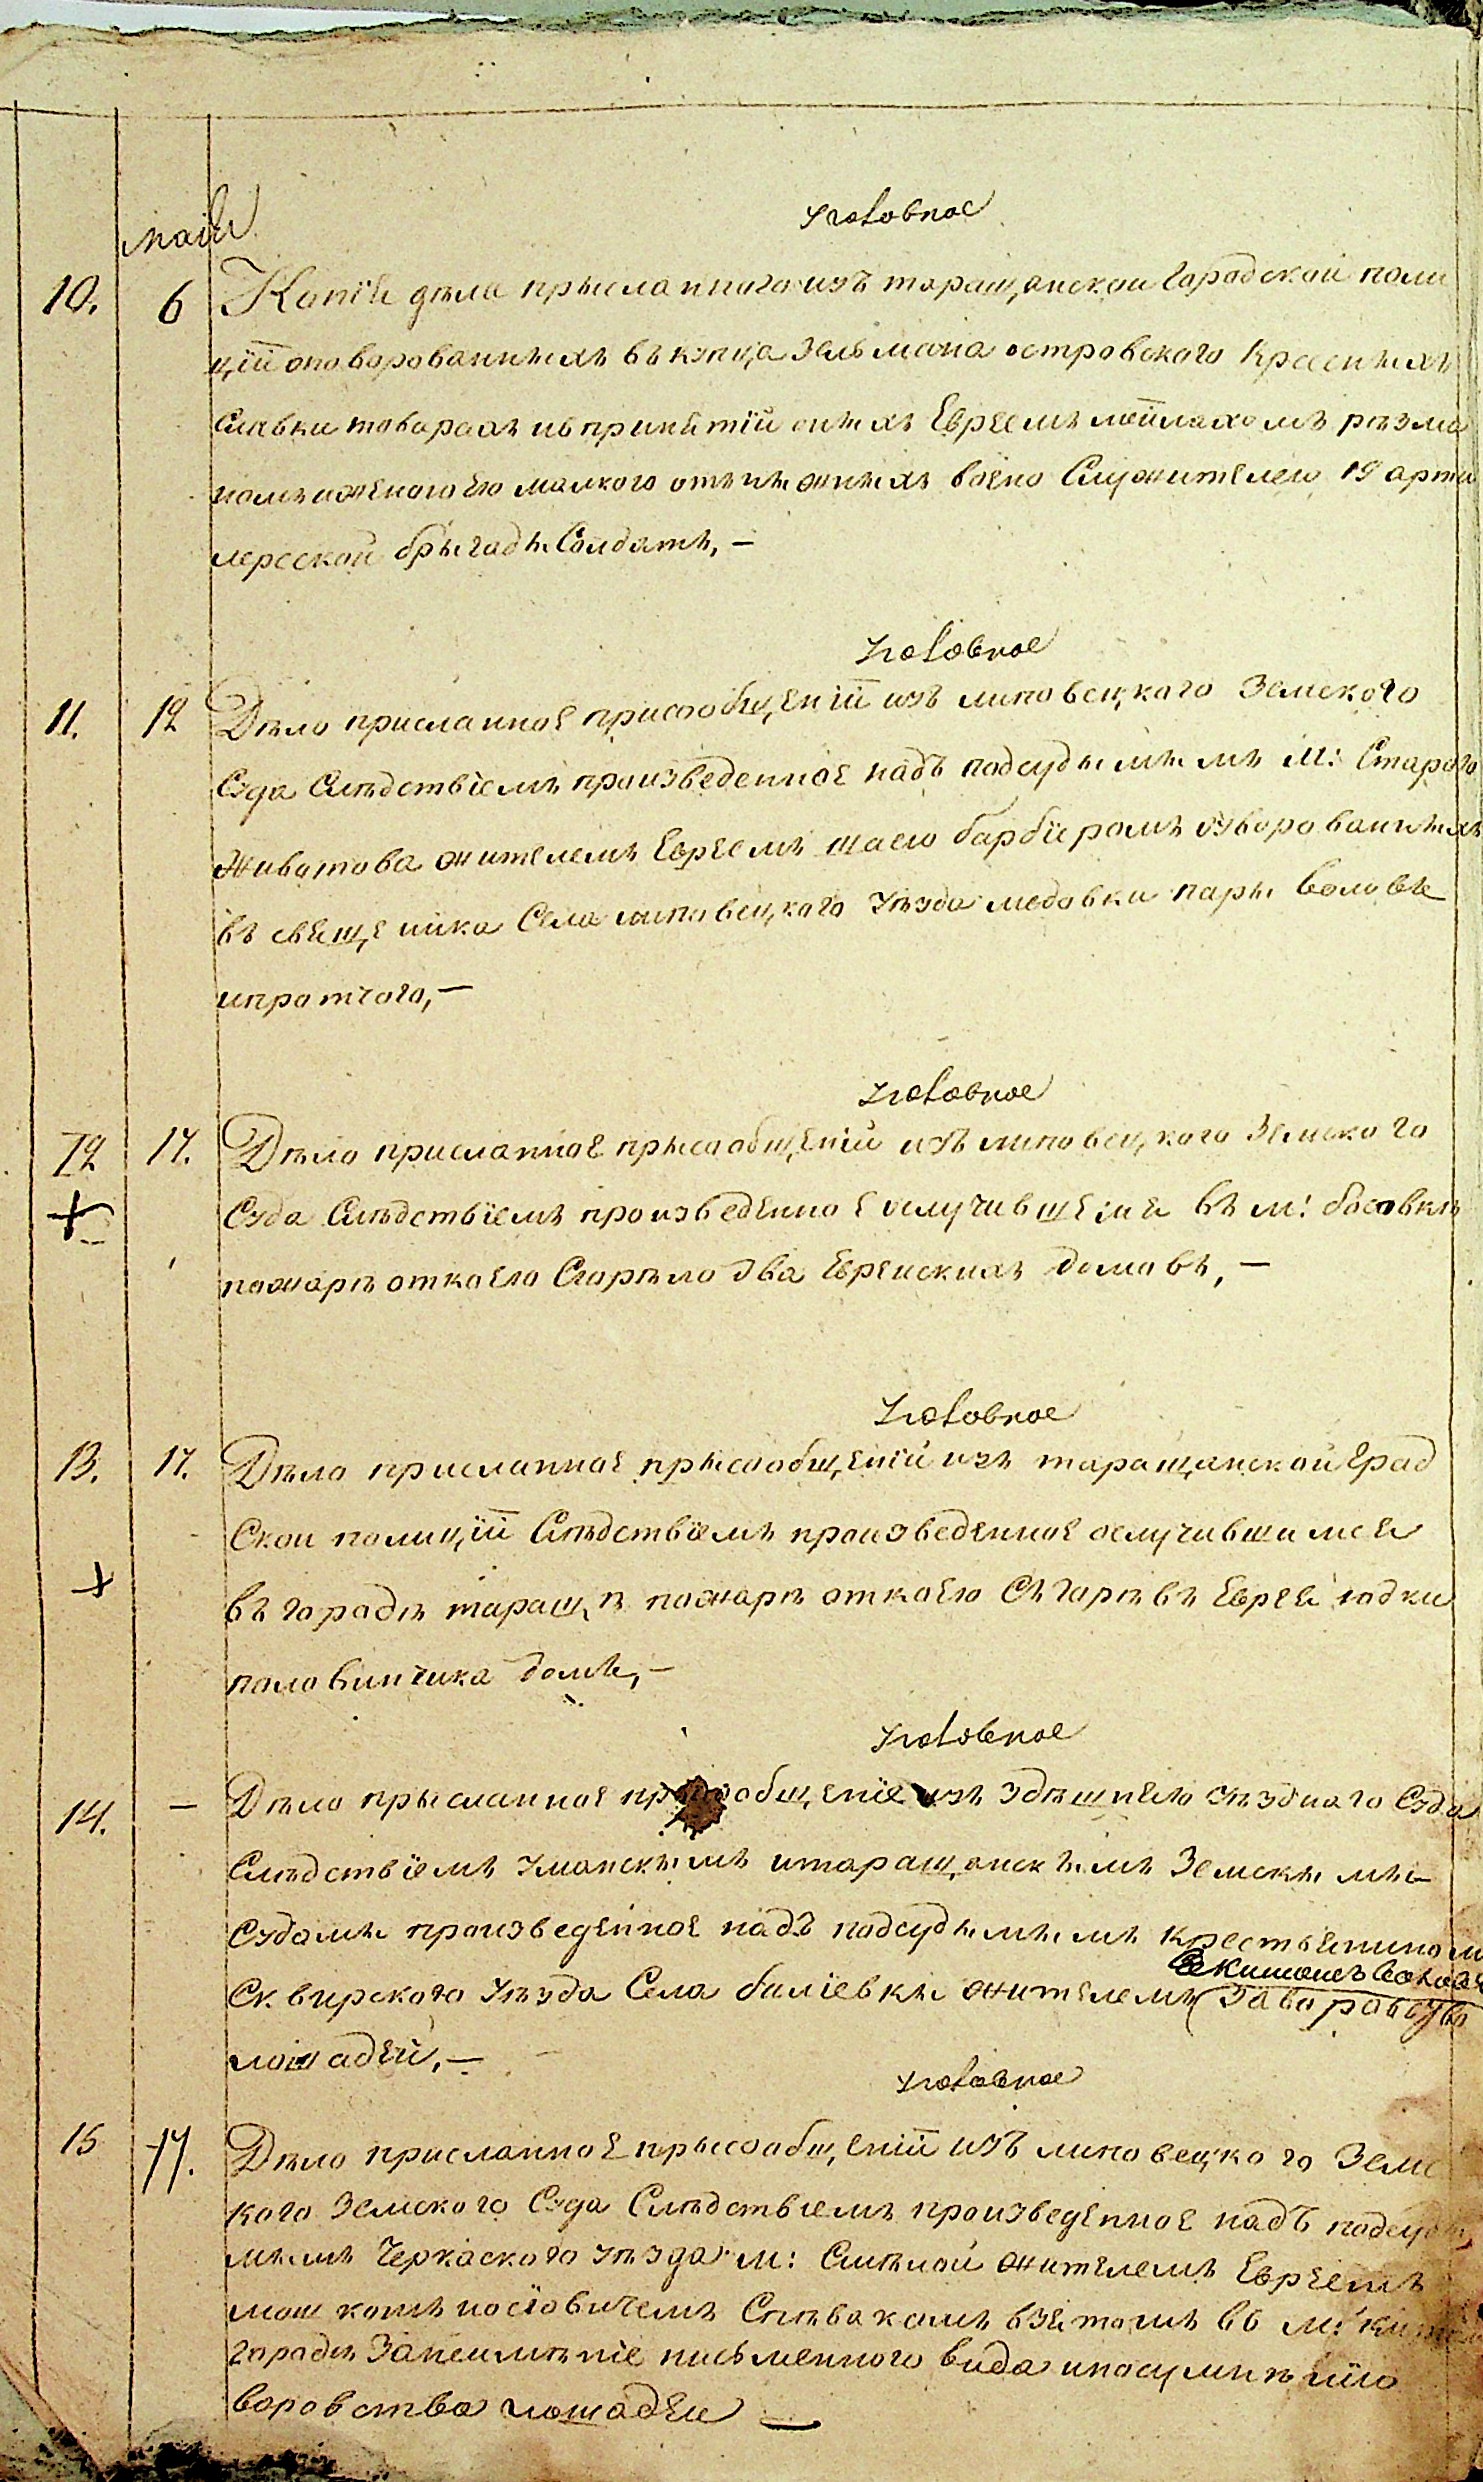 уголовное
маия
10. 6 Копія дѣла прысланного изъ таращанской Городской поли
ціи оповорованныхъ въ купца Зельмана островского Красныхъ
Славки товарахъ ивпринятіи оныхъ Евреемъ
ныхъ воено Служителею 19 арти
лереской брыгады Солдатъ, —
уголовное
11. 12 Дѣло присланное присообщеніи изъ липовецкого Земского
Суда Слѣдствіемъ произведенное надъ подсудымымъ М: Старого
Животова жителемъ Евреемъ шаею барбіромъ оуворованныхъ
въ священика Села липовецкого уѣзда медовки пары воловъ
ипротчого, —
уголовное
12 17. Дѣло присланное прысообщеніи изъ липовецкого Земского
Суда Слѣдствіемъ произведенное ослучившемся въ м: босовкѣ
пожарѣ откоего Сгорѣло два Еврейскихъ домовъ, —
уголовное
13. 17. Дѣло присланное прысообщеніи изъ таращанской град
Скои полиціи Слѣдствіемъ произведенное ослучившимся
въ городѣ таращѣ пожарѣ откоего Сгорѣ въ Еврея юдки
половинчика домъ, —
уголовное
14. — Дѣло прысланное прысообщеніе изъ здѣшнего уѣздного Суда
Слѣдствіемъ уманскымъ итаращанскымъ Земскымъ
Судомъ произведенное надъ подсудымымъ крестьяниномъ
Сквирского уѣзда Села баліевкы жителемъ заворовсуво
лошадей, —
уголовное
15 17. Дѣло присланное прысообщеніи изъ липовецкого Земс
кого Земского Суда Слѣдствіемъ произведенное надъ подсуды
мымъ Черкаского уѣзда м: Смѣлой жителемъ Евреемъ
мошкомъ иосіовичемъ Співакомъ взятомъ въ м:
городѣ Занеимѣніе письменного вида ипосумнѣнію
воровства лошадеи —